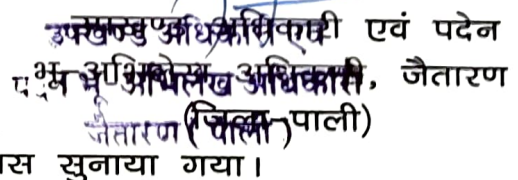 उपखण्ड अधिकारी एवं पदेन
भू अभिलेख अधिकारी, जैतारण
जैतारण (पाली)
(जिला-पाली)
स सुनाया गया।